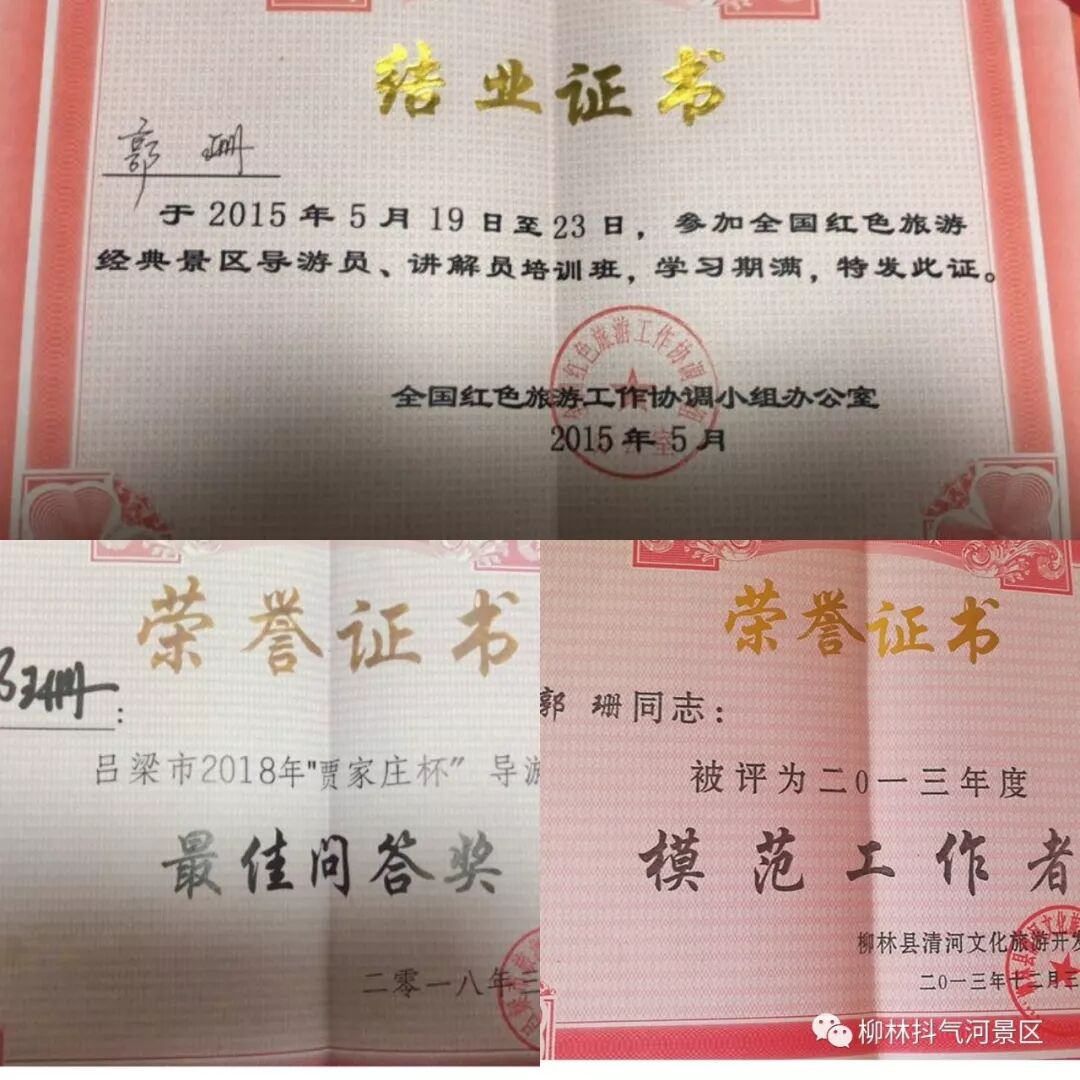 结业证书
郭珊
于2015年5月19日至23日，参加全国红色旅游
经典景区导游员、讲解员培训班，学习期满，特发此证。
全国红色旅游工作协调小组办公室
2015年5月
荣誉证书
珊：
吕梁市2018年"贾家庄杯"导游
最佳问答奖
二零一八年三
荣誉证书
郭珊同志：
被评为二0一三年度
模范工作者
柳林县清河文化旅游开发
二0一三年十二月三
柳林抖气河景区